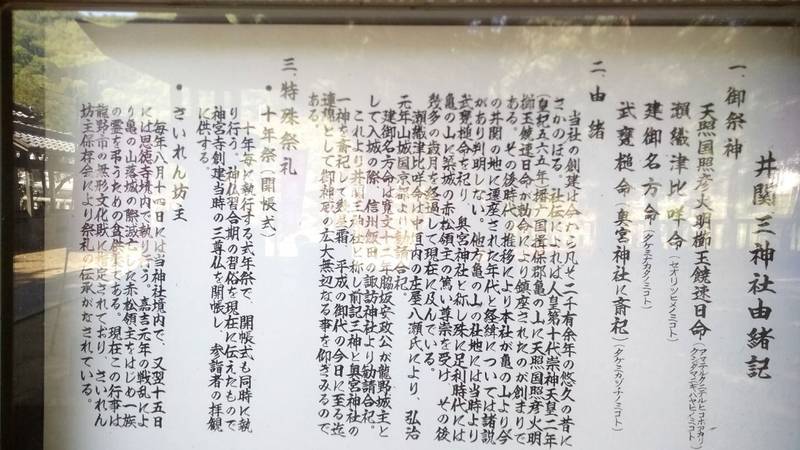 井関三神社由緒記
一、御祭神
天照国照彦火明櫛玉饒速日命(アマテルクニテルヒコホアカリクシタマニギハヤヒノミコト)
瀬織津比咩命(セオリツヒメノミコト)
建御名方命(タケミナカタノミコト)
武甕槌命(奥宮神社に斎祀)(タケミカヅチノミコト)
二、由緒
当社の創建は今から凡そ二千有余年の悠久の昔に
さかのぼる。社伝によれば人皇第十代崇神天皇二年
(皇紀五六五年)播广国揖保郡亀の山に天照国照彦火明
櫛玉饒速日命が勅命により鎮座されたのが創まりで
ある。その後時代の推移により本社が亀の山より今
の井関の地に遷座された年代と経緯については諸説
があり判明しない。他方亀の山の社地には当時より
武甕槌命を祀り、奥宮神社と称し殊に足利時代には
亀の山に築城の赤松領主の篤い尊崇を受け、その後
幾多の歳月を経過して現在に及んでいる。
瀬織津比咩命は中垣内の庄屋八瀬氏により、弘治
元年山城国京都より勧請合祀。
建御名方命は寛文十二年脇坂安政公が龍野城主と
して入城の際、信州飯田の諏訪神社より勧請合祀。
これより井関三神社と称し前記三神と奥宮神社の
一神を斎祀して幾星霜、平成の御代の今日に至る迄
連綿として御神威の広大無辺なる事を仰ぎみるので
ある。
三、特殊祭礼
• 十年祭(開帳式)
十年毎に執行する式年祭で、開帳式も同時に執
り行う。神仏習合期の習俗を現在に伝えたもので
神宮寺創建当時の三尊仏を開帳し、参詣者の拝観
に供する。
• さいれん坊主
毎年八月十四日には当神社境内で、又翌十五日
には恩徳寺境内で執り行う。嘉吉元年の戦乱によ
り亀の山落城の際滅亡した赤松領主をはじめ一族
の霊を弔うための盆供養である。現在この行事は
龍野市の無形文化財に指定されており、さいれん
坊主保存会により祭礼の伝承がなされている。